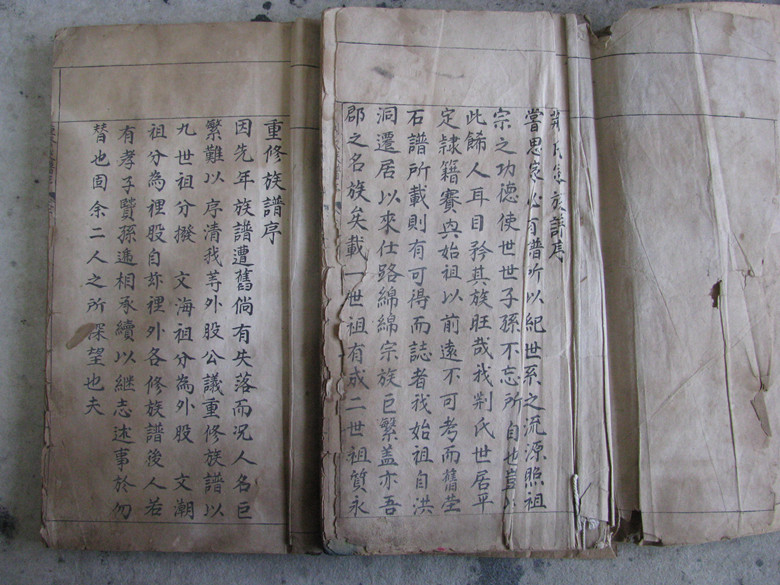 氏族譜序
嘗思家必有譜所以紀世系之流源照祖
宗之功德使世世子孫不忘所自也豈以
此餙人耳目矜其族旺哉我荆氏世居平
定隷籍賽與始祖以前遠不可考而舊塋
石譜所載則有可得而誌者我始祖自洪
洞遷居以來仕路綿綿宗族巨繁盖亦吾
郡之名族矣載一世祖有成二世祖質永
重修族譜序
因先年族譜遭舊倘有失落而况人名巨
繁難以序清我等外股公議重修族譜以
九世祖分撥 文海祖分為外股 文潮
祖分為裡股自 裡外各修族譜後人若
有孝子賢孫逓相承續以継志述事於勿
替也固余二人之所深望也夫